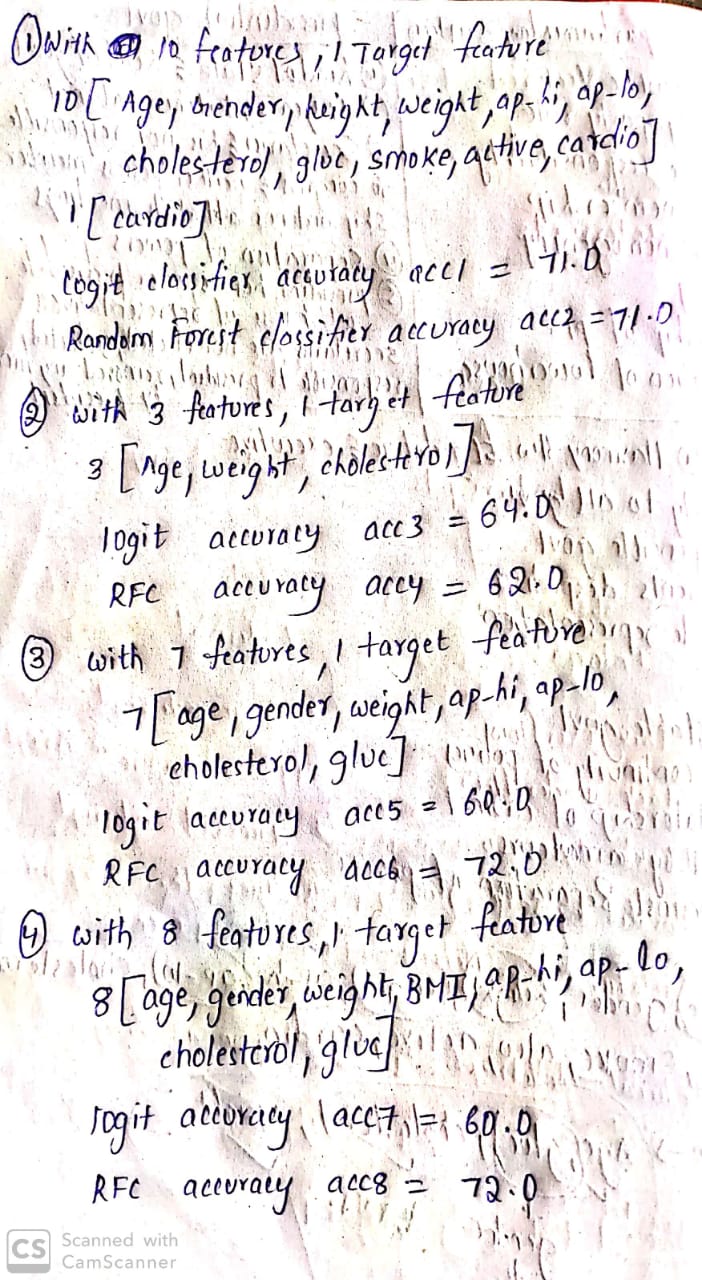 ① With 10 features, 1 Target feature
10 [ Age, Gender, height, weight, ap-hi, ap-lo,
cholesterol, gluc, smoke, active, cardio]
1 [cardio]
logit classifier accuracy acc1 = 71.0
Random Forest classifier accuracy acc2 = 71.0
② with 3 features, 1 target feature
3 [Age, weight, cholesterol]
logit accuracy acc3 = 64.0
RFC accuracy accy = 62.0
③ with 7 features, 1 target feature
7 [age, gender, weight, ap-hi, ap-lo,
cholesterol, gluc]
logit accuracy acc5 = 60.0
RFC accuracy acc6 = 72.0
④ with 8 features, 1 target feature
8 [age, gender, weight, BMI, ap-hi, ap-lo,
cholesterol, gluc]
logit accuracy acc7 = 60.0
RFC accuracy acc8 = 72.0
CS Scanned with
CamScanner